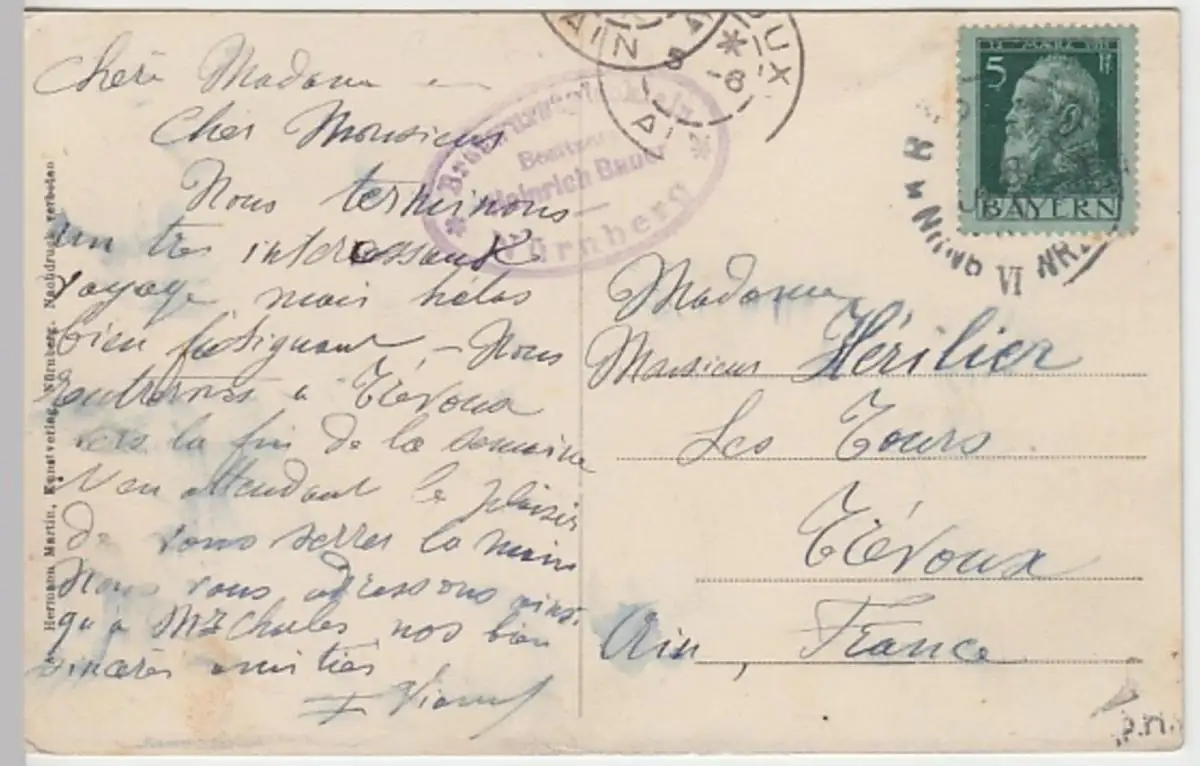 Chère Madame
Cher Monsieur
Nous terminons
un très intéressant
voyage mais hélas
bien fatigant, - Nous
rentrerons à Trévoux
vers la fin de la semaine
N en attendant le plaisir
de vous serrer la main
Nous vous adressons ainsi
qu'à Mr Charles nos bien
sincères amitiés
Heinrich Bauer
Nürnberg
AIN
UX
5
BAYERN
VI
Madame
Monsieur Hérilier
Les Tours
Trévoux
Ain, France
Hermann Martin, Kunstverlag, Nürnberg. Nachdruck verboten